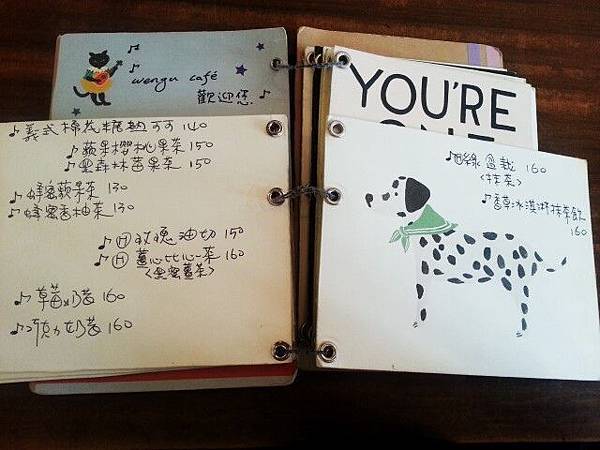 wengu café
歡迎您
YOU'RE
ONE
♪義式棉花糖熱可可 140
♪蘋果櫻桃果茶 150
♪黑森林莓果茶 150
♪蜂蜜蘋果茶 130
♪蜂蜜香柚茶 130
♪Ⓗ玫瑰油切 150
♪Ⓗ薑心比心茶 160
<黑蜜薑茶>
♪草莓奶昔 160
♪巧克力奶昔 160
♪綠盆栽 160
<抹茶>
♪香草冰淇淋抹茶飲
160